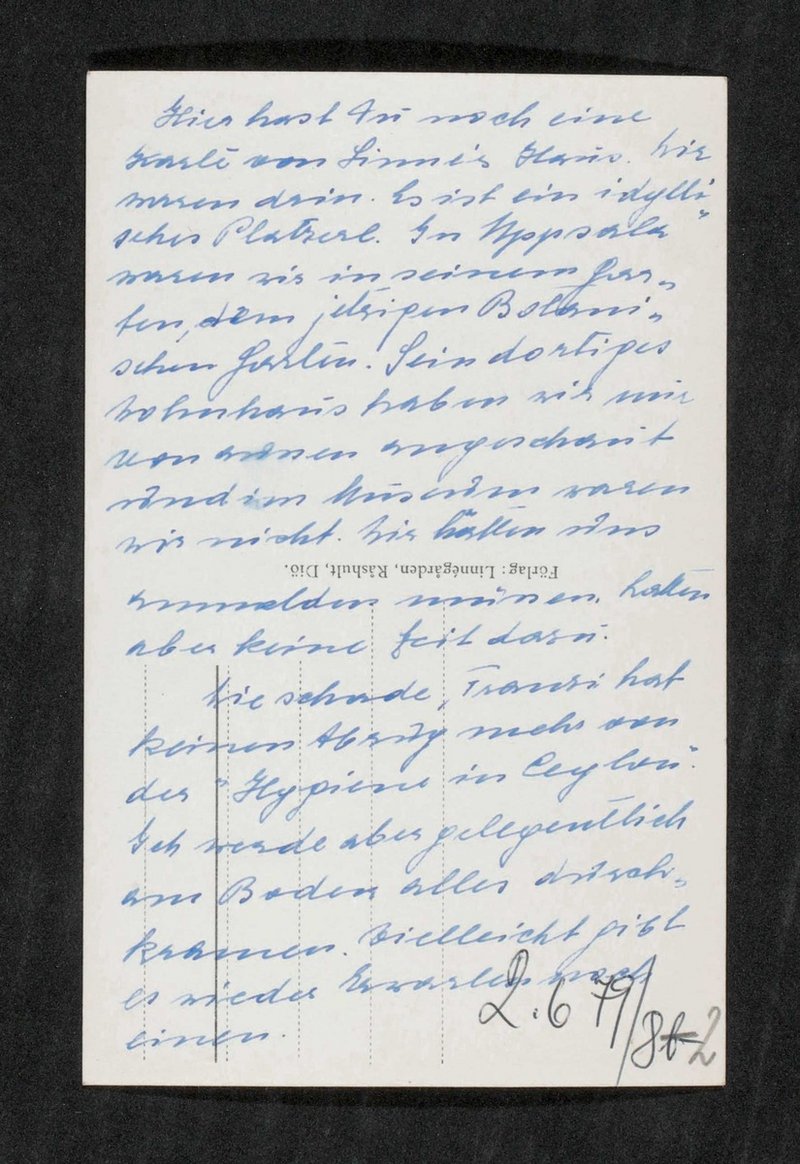 Hier hast Du noch eine
Karte von Linnés Haus. Wir
waren drin. Es ist ein idylli-
sches Platzerl. In Uppsala
waren wir in seinem Gar-
ten, dem jetzigen Botani-
schen Garten. Sein dortiges
Wohnhaus haben wir nur
von aussen angeschaut
und im Museum waren
wir nicht. Wir hätten uns
Förlag: Linnégården, Råshult, Diö.
anmelden müssen, hatten
aber keine Zeit dazu.
Wie schade, Franzi hat
keinen Abzug mehr von
der "Hygiene in Ceylon".
Ich werde aber gelegentlich
am Boden alles durch-
kramen. Vielleicht gibt
es wieder Erwarten noch
einen.
2.679/